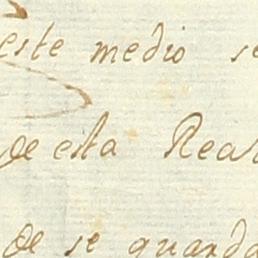 este medio se
de esta Real
de se guarda